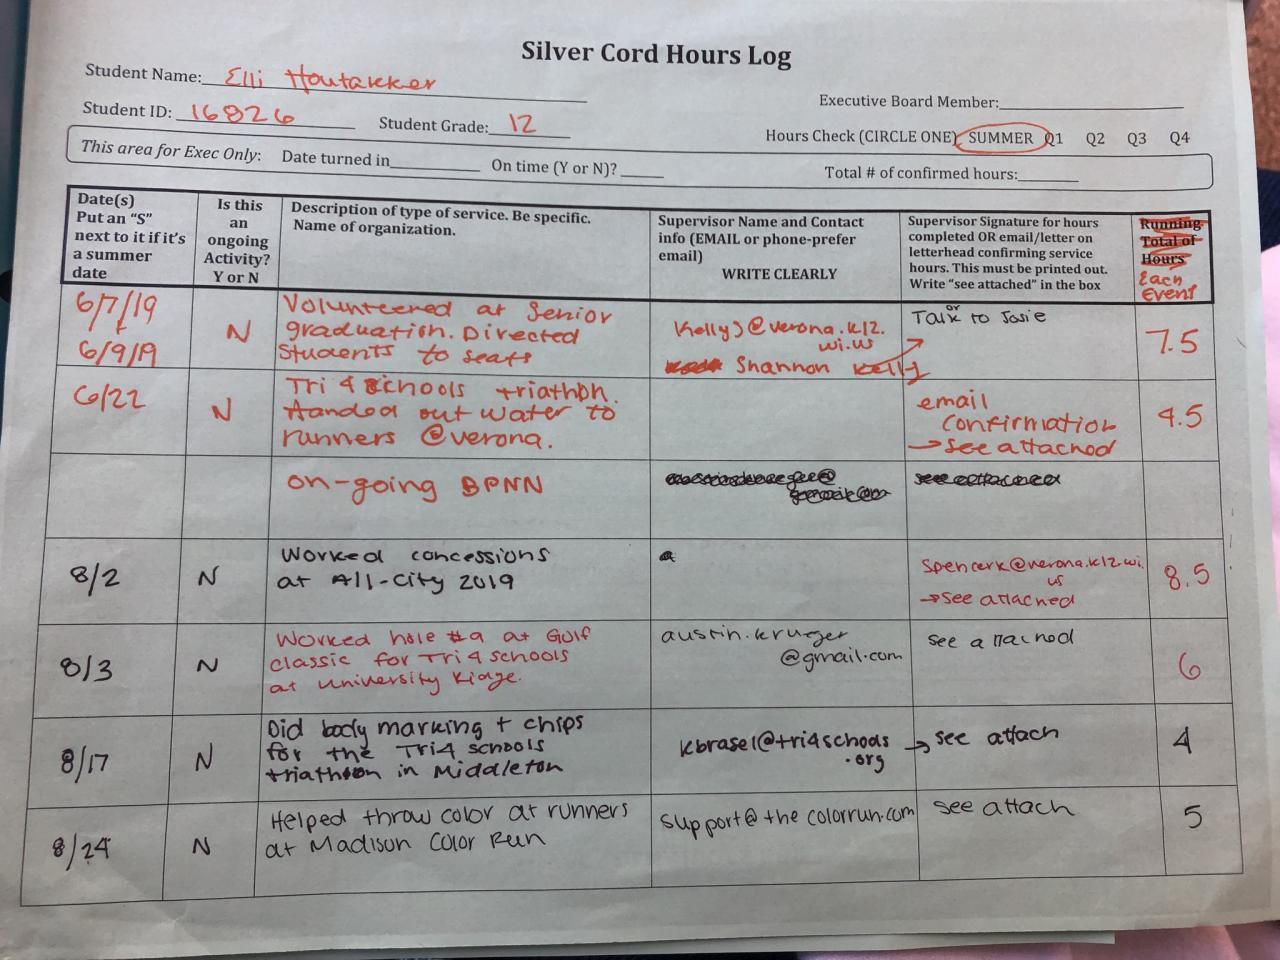 Silver Cord Hours Log
Student Name: Elli Houtakker
Executive Board Member:
Student ID: 16826 Student Grade: 12
Hours Check (CIRCLE ONE) SUMMER Q1 Q2 Q3 Q4
This area for Exec Only: Date turned in On time (Y or N)? Total # of confirmed hours:
Date(s)
Put an "S"
next to it if it's
a summer
date
Is this
an
ongoing
Activity?
Y or N
Description of type of service. Be specific.
Name of organization.
Supervisor Name and Contact
info (EMAIL or phone-prefer
email)
WRITE CLEARLY
Supervisor Signature for hours
completed OR email/letter on
letterhead confirming service
hours. This must be printed out.
Write "see attached" in the box
Running
Total of
Hours
Each
Event
6/7/19
6/9/19
N
Volunteered at Senior
graduation. Directed
students to seats
Kellyj@verona.k12.
wi.us
Shannon Kelly
or
Talk to Josie
7.5
6/22
N
Tri 4 schools triathon.
Handed out water to
runners @verona.
email
confirmation
→ see attached
4.5
on-going BPNN
8/2
N
Worked concessions
at All-City 2019
Spencerk@verona.k12.wi.
us
→ see attached
8.5
8/3
N
Worked hole #9 at Golf
classic for Tri 4 schools
at University Ridge.
austin.kruger
@gmail.com
see attached
6
8/17
N
Did body marking + chips
for the Tri4 schools
triathlon in Middleton
kbrasel@tri4schools
.org
→ see attach
4
8/24
N
Helped throw color at runners
at Madison Color Run
support@thecolorrun.com
see attach
5